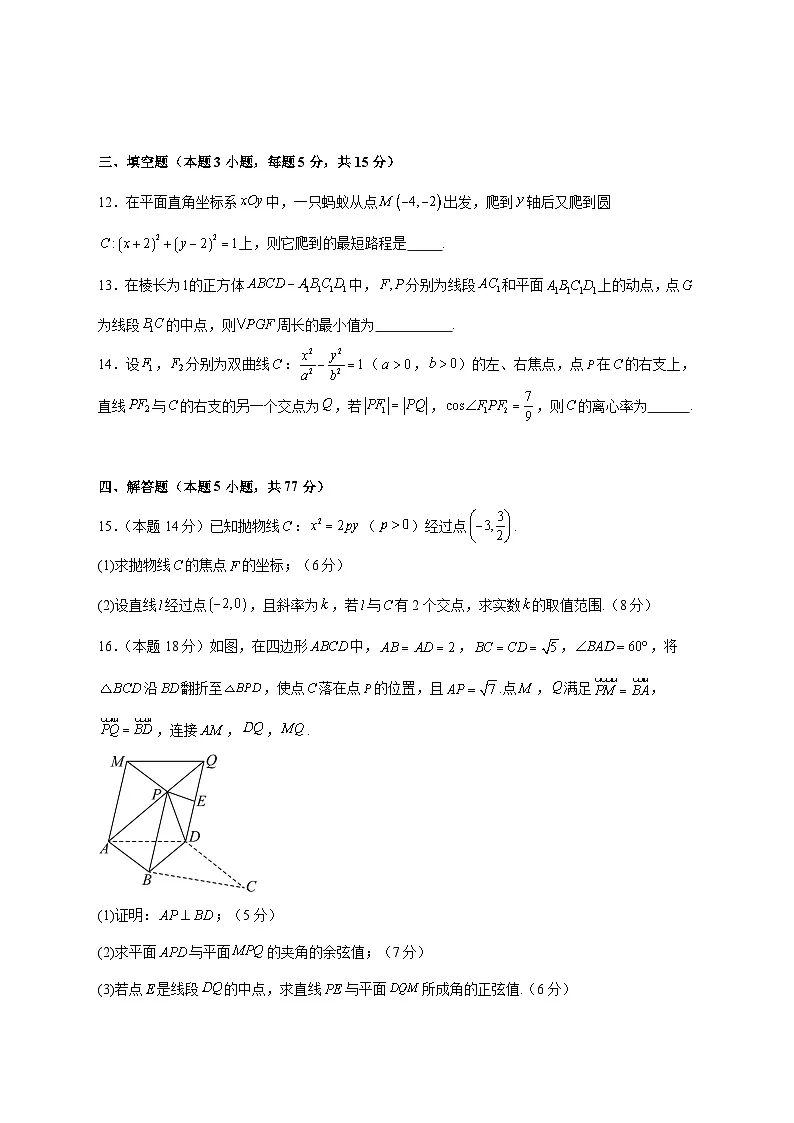 三、填空题（本题 3 小题，每题 5 分，共 15 分）
12．在平面直角坐标系 xOy 中，一只蚂蚁从点 M (−4,−2) 出发，爬到 y 轴后又爬到圆
C:(x+2)²+(y−2)²=1 上，则它爬到的最短路程是_____.
13．在棱长为 1 的正方体 ABCD−A₁B₁C₁D₁ 中，F,P 分别为线段 AC₁ 和平面 A₁B₁C₁D₁ 上的动点，点 G
为线段 B₁C 的中点，则 VPGF 周长的最小值为___________.
14．设 F₁，F₂ 分别为双曲线 C：x²/a²−y²/b²=1（a>0，b>0）的左、右焦点，点 P 在 C 的右支上，
直线 PF₂ 与 C 的右支的另一个交点为 Q，若 |PF₁|=|PQ|，cos∠F₁PF₂=7/9，则 C 的离心率为______.
四、解答题（本题 5 小题，共 77 分）
15．（本题 14 分）已知抛物线 C：x²=2py（p>0）经过点 (−3,3/2).
(1)求抛物线 C 的焦点 F 的坐标；（6 分）
(2)设直线 l 经过点 (−2,0)，且斜率为 k，若 l 与 C 有 2 个交点，求实数 k 的取值范围.（8 分）
16．（本题 18 分）如图，在四边形 ABCD 中，AB=AD=2，BC=CD=√5，∠BAD=60°，将
△BCD 沿 BD 翻折至 △BPD，使点 C 落在点 P 的位置，且 AP=√7.点 M，Q 满足 PM=BA，
PQ=BD，连接 AM，DQ，MQ.
M
Q
P
E
A
D
B
C
(1)证明：AP⊥BD；（5 分）
(2)求平面 APD 与平面 MPQ 的夹角的余弦值；（7 分）
(3)若点 E 是线段 DQ 的中点，求直线 PE 与平面 DQM 所成角的正弦值.（6 分）